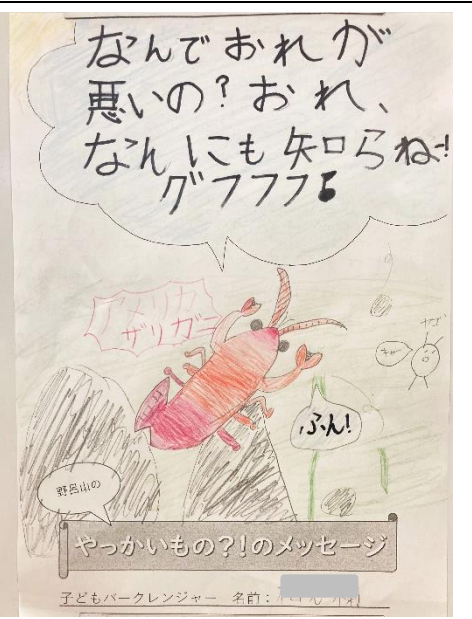 なんでおれが
悪いの？おれ、
なんにも知らねー！
グフフフ♪
アメリカ
ザリガニ
ヤゴ
ふん！
野呂山の
やっかいもの？！のメッセージ
子どもパークレンジャー 名前：